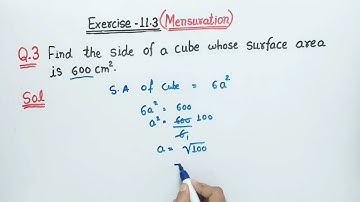 Exercise - 11.3 (Mensuration)
Q.3 Find the side of a cube whose surface area
is 600 cm².
Sol
S.A of cube = 6a²
6a² = 600
a² = 600/6 100
1
a = √100